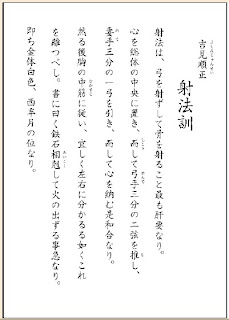 射法訓
吉見順正
射法は、弓を射ずして骨を射ること最も肝要なり。
心を総体の中央に置き、而して弓手三分の二弦を推し、
妻手三分の一弓を引き、而して心を納む是和合なり。
然る後胸の中筋に従い、宜しく左右に分かるる如くこれ
を離つべし。書に曰く鉄石相剋して火の出ずる事急なり。
即ち金体白色、西半月の位なり。